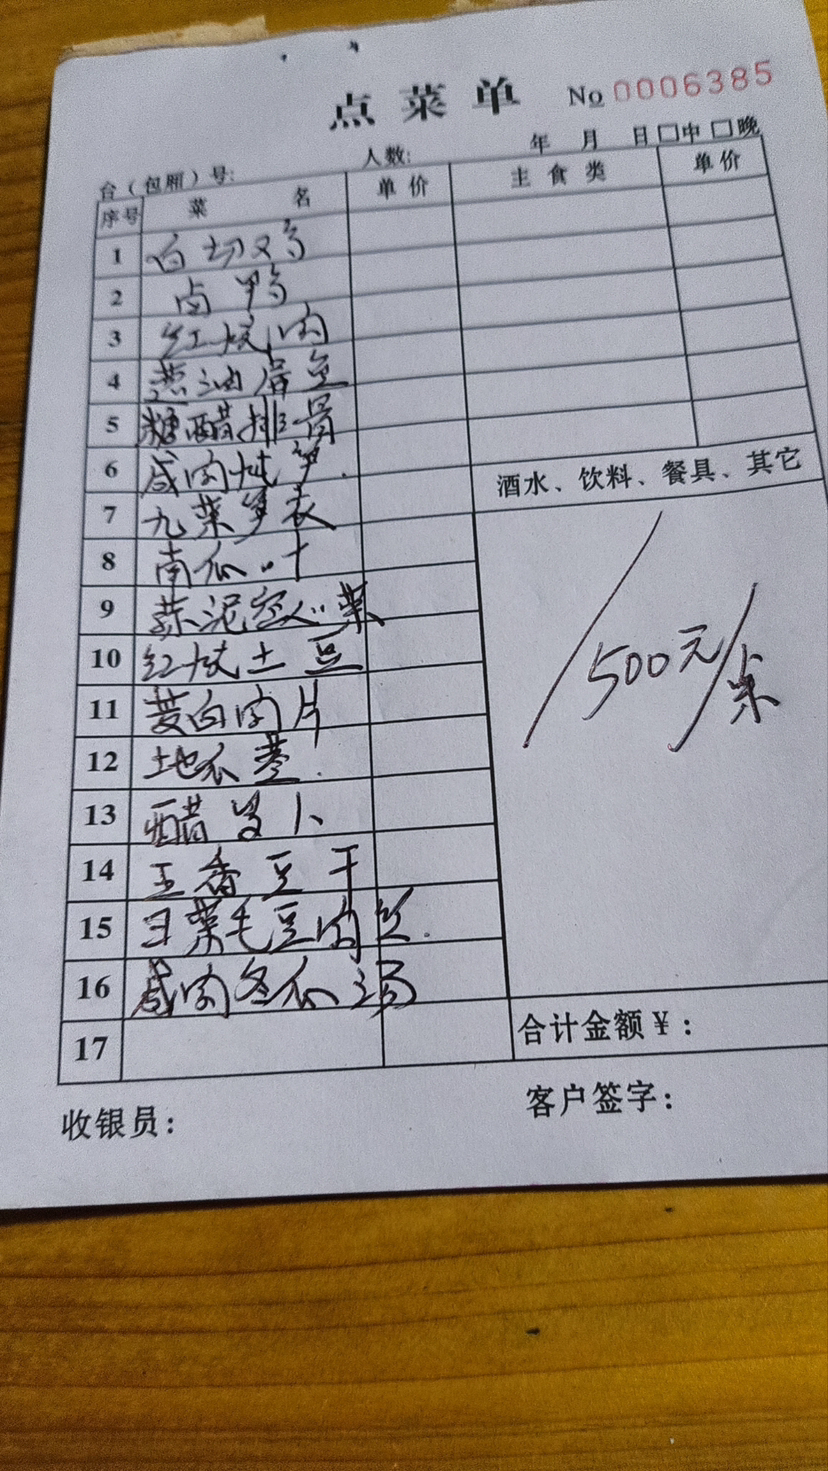 点菜单 No 0006385
台（包厢）号: 人数: 年 月 日 □中 □晚
序号 菜名 单价 主食类 单价
1 白切鸡
2 卤鸭
3 红烧肉
4 葱油蚕豆
5 糖醋排骨
6 咸肉炖笋
7 九菜笋衣
8 南瓜叶
9 蒜泥空心菜
10 红烧土豆
11 茭白肉片
12 地瓜
13 醋萝卜
14 五香豆干
15 毛豆肉丝
16 咸肉冬瓜汤
17
酒水、饮料、餐具、其它
500元/桌
合计金额￥:
收银员: 客户签字: